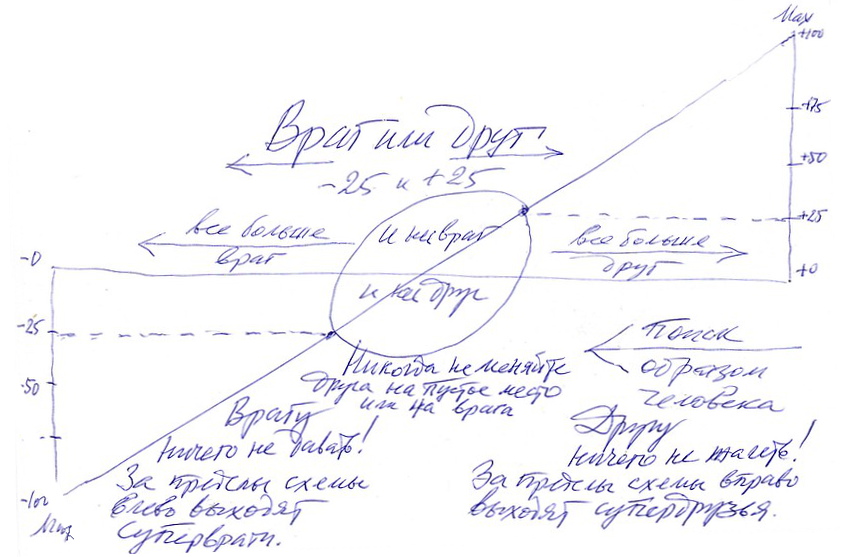 Max
+100
+75
+50
+25
+0
Враг или друг
-25 и +25
все больше
враг
и не враг
и не друг
все больше
друг
-0
-25
-50
-100
Поиск
образом
человека
Никогда не меняйте
друга на пустое место
или на врага
Врагу
ничего не давать!
За пределы схемы
влево выходят
супервраги.
Другу
ничего не жалеть!
За пределы схемы вправо
выходят супердрузья.